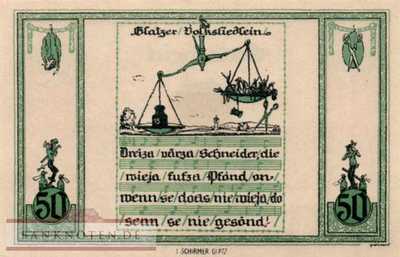 Glatzer / Volksliedlein
15
Dreiza / värza / Schneider, die
/ wieja / fufza / Pfond, on /
wenn / se / doas / nie / wieja / do
senn / se / nie / gesönd!
50
50
BANKNOTEN.DE
SCHIRMER GLATZ